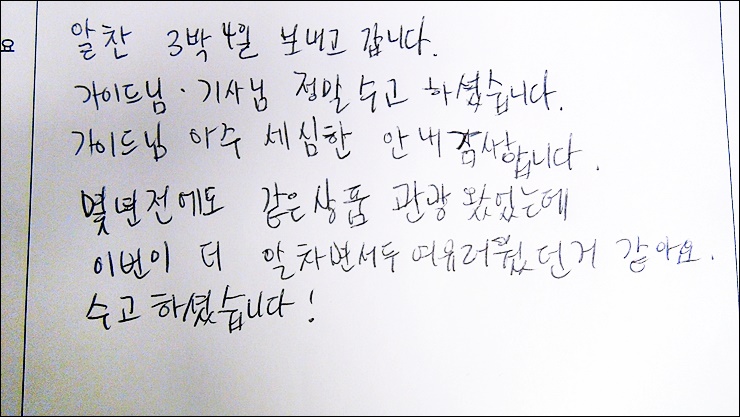 요
알찬 3박 4일 보내고 갑니다.
가이드님·기사님 정말 수고 하셨습니다.
가이드님 아주 세심한 안내 감사합니다.
몇년전에도 같은상품 관광 왔었는데
이번이 더 알차면서두 여유러웠던거 같아요.
수고하셨습니다!